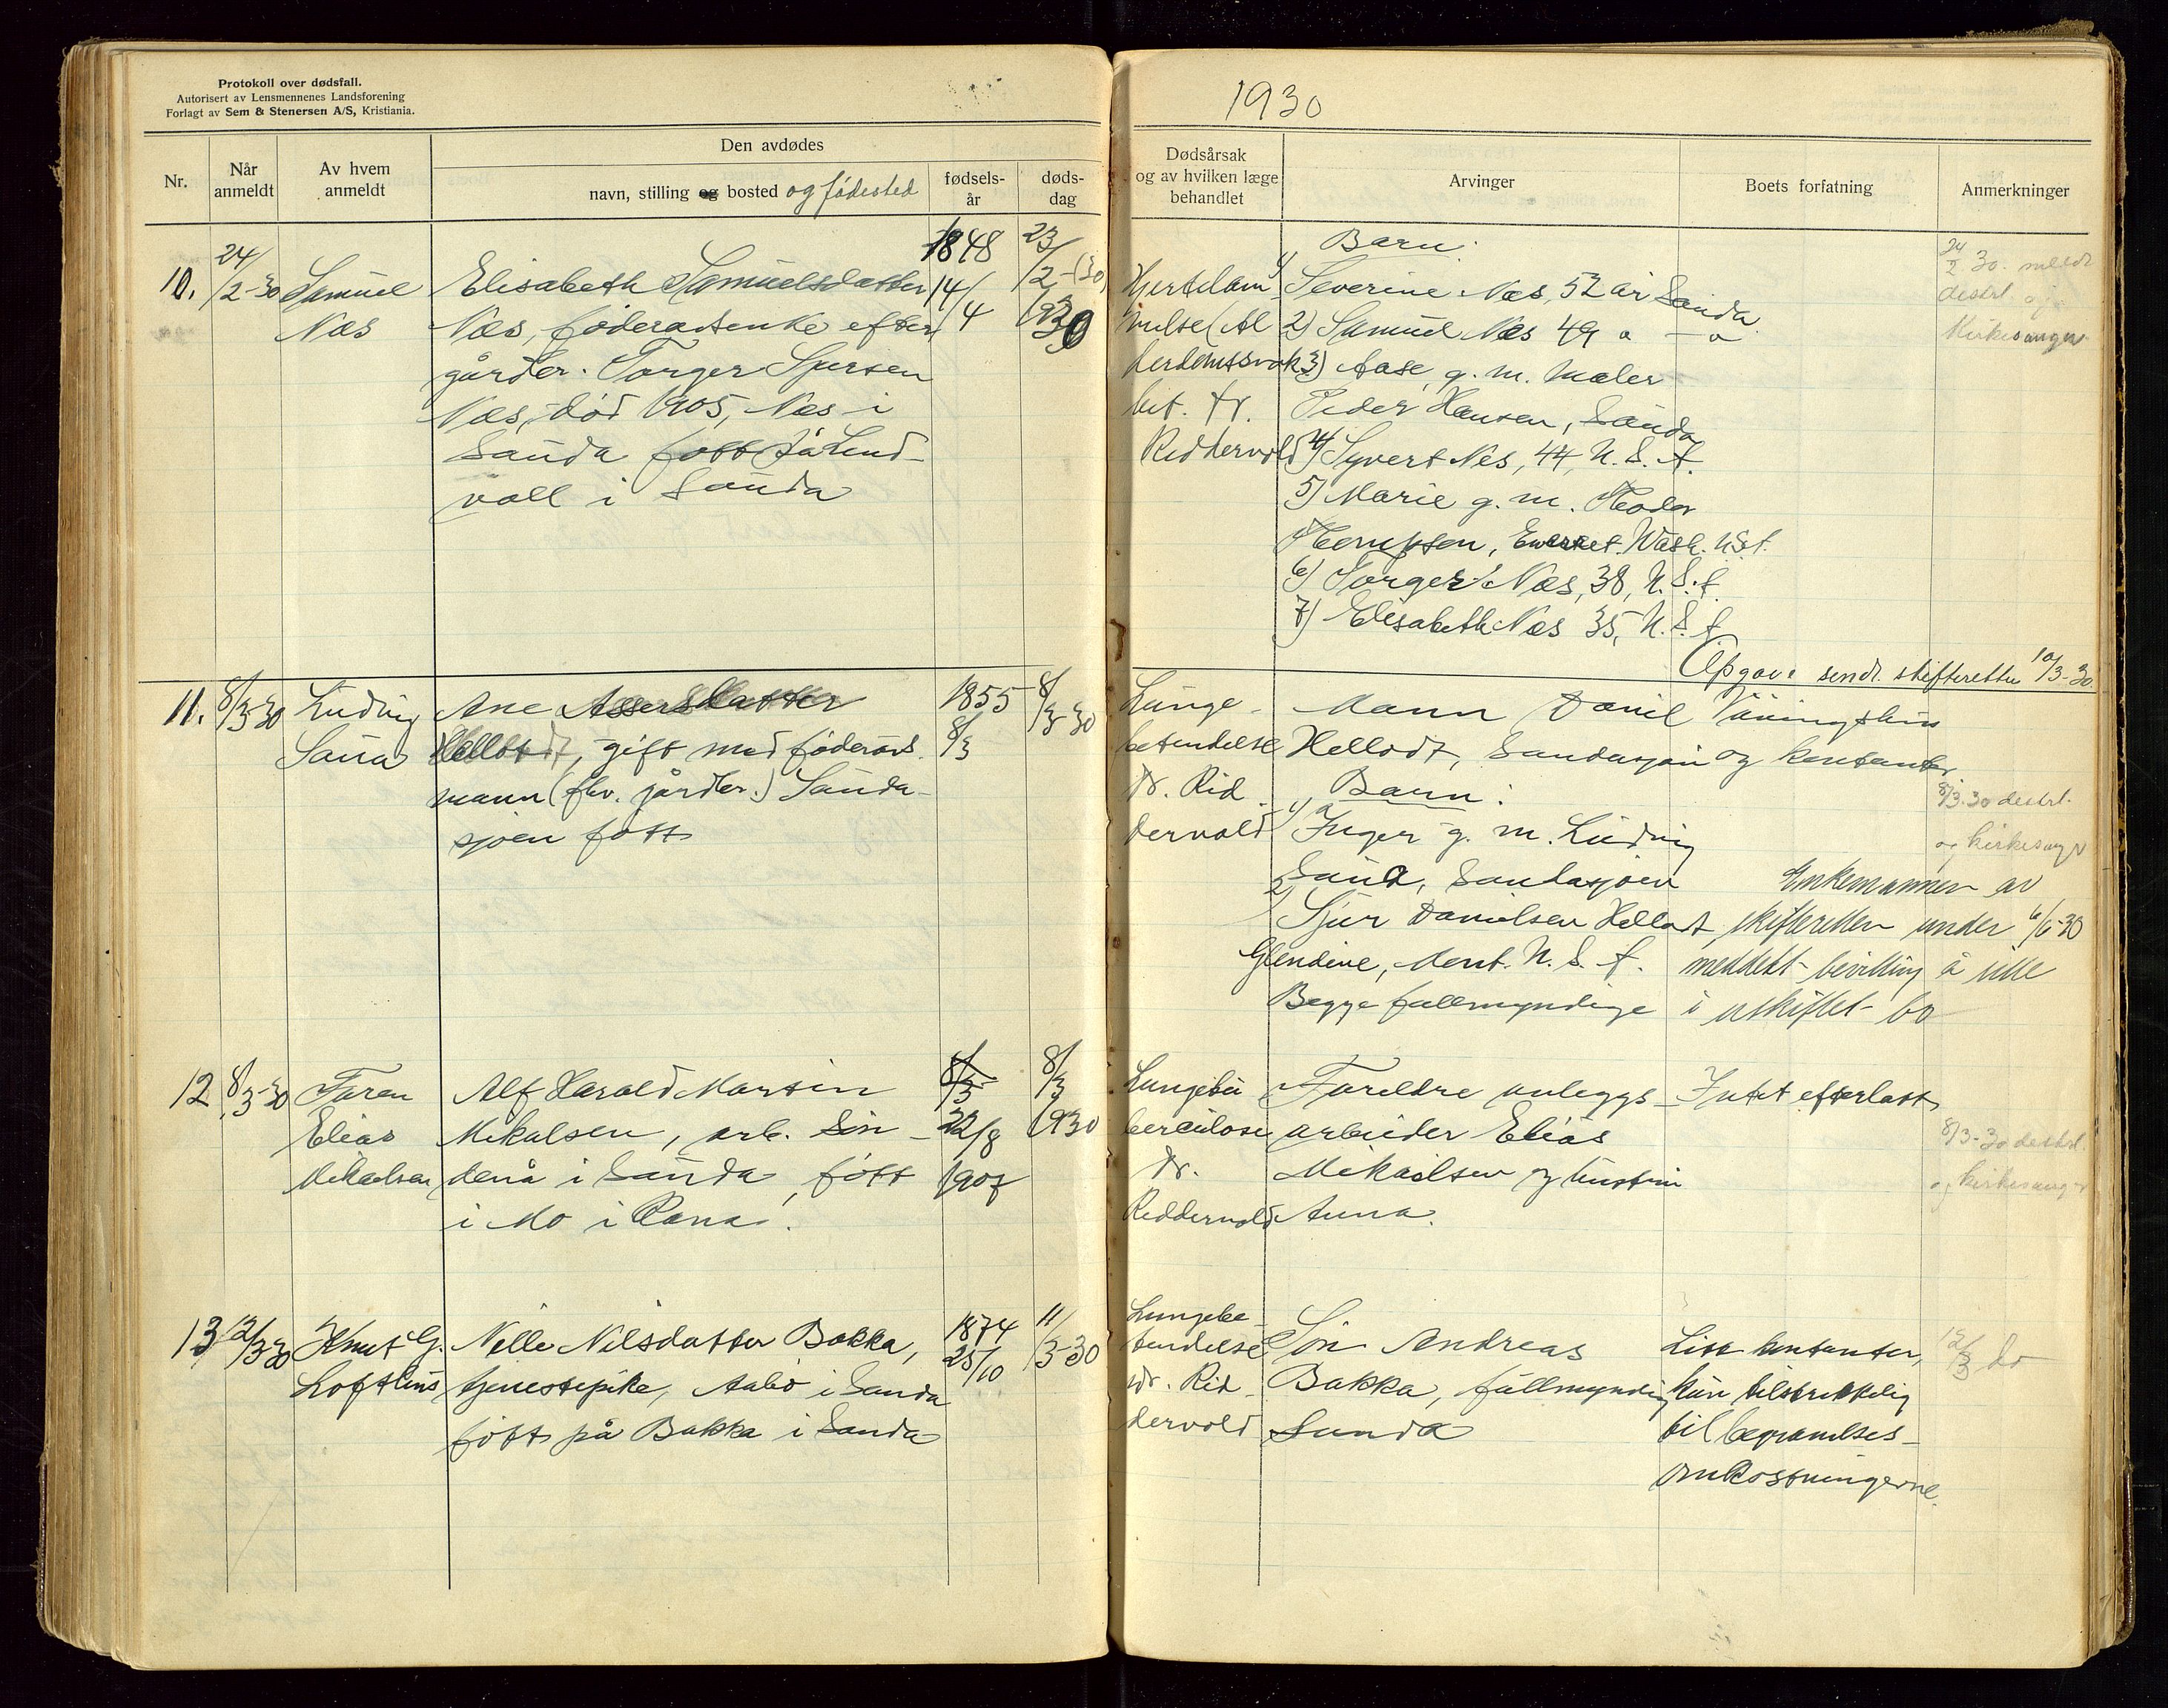 Protokoll over dødsfall.
Autorisert av Lensmennenes Landsforening
Forlagt av Sem & Stenersen A/S, Kristiania.
1930
Nr.
Når anmeldt
Av hvem anmeldt
Den avdødes
navn, stilling og bosted og fødested
fødsels-år
døds-dag
Dødsårsak og av hvilken læge behandlet
Arvinger
Boets forfatning
Anmerkninger
10.
24/2-30
Samuel
Næs
Elisabeth Samuelsdatter
Næs, føderåtsenke efter
gårdbr. Torger Sjursen
Næs, død 1905, Næs i
Sauda født på Lund-
voll i Sauda
1848
14/4
23/2-(30)
1930
Hjertelam-
melse (Al
derdomssvak
het. Dr.
Riddervold
Barn:
1) Severine Næs, 52 år Sauda
2) Samuel Næs 49 " - "
3) Aase g. m. maler
Peder Hansen, Sauda
4) Syvert Nes, 44, U. S. A.
5) Marie g. m. Teodor
, Wash. U.S.A.
6) Torger Næs, 38, U. S. A.
7) Elisabeth Næs 35, U. S. A.
24/2 30. meldt
distrl. og
kirkesanger
Opgave sendt skifteretten 10/3-30.
11.
8/3-30
Ludvig
Sauda
Ane Assersdatter
Hellodt, gift med føderåds
mann (fhv. gårdbr.) Sauda-
sjøen født
1855
8/3
8/3-30
Lunge-
betendelse
Dr. Rid
dervold
Mann Daniel
Hellodt, Saudasjøen
Barn:
1) Inger g. m. Ludvig
Saud, Saudasjøen
2) Sjur Danielsen Hellodt
Glendive, Mont. U. S. A.
Begge fullmyndige
Våningshus
og kontanter
Enkemannen av
skifteretten under 6/6-30
meddelt bevilling å sitte
i uskiftet bo
8/3.30 distrl.
og kirkesanger
12
8/3-30
Faren
Elias
Mikaelsen
Alf Harald Martin
Mikalsen, arb. Søn-
denå i Sauda, født
i Mo i Rana.
8/3
22/8
1907
8/3
1930
Lungetu
berculose
Dr.
Riddervold
Foreldre anleggs-
arbeider Elias
Mikaelsen og hustru
Anna.
Intet efterlatt
8/3-30 distrl.
og kirkesanger
13
12/3-30
Knut G.
Løfthus
Nille Nilsdatter Bakka,
tjenestepike, Aabø i Sauda
født på Bakka i Sauda
1874
25/10
11/3-30
Lungebe-
tendelse
dr. Rid-
dervold
Søn Andreas
Bakka, fullmyndig
Sauda
Litt kontanter,
kun tilstrekkelig
til begravelses-
omkostningerne.
12/3 do